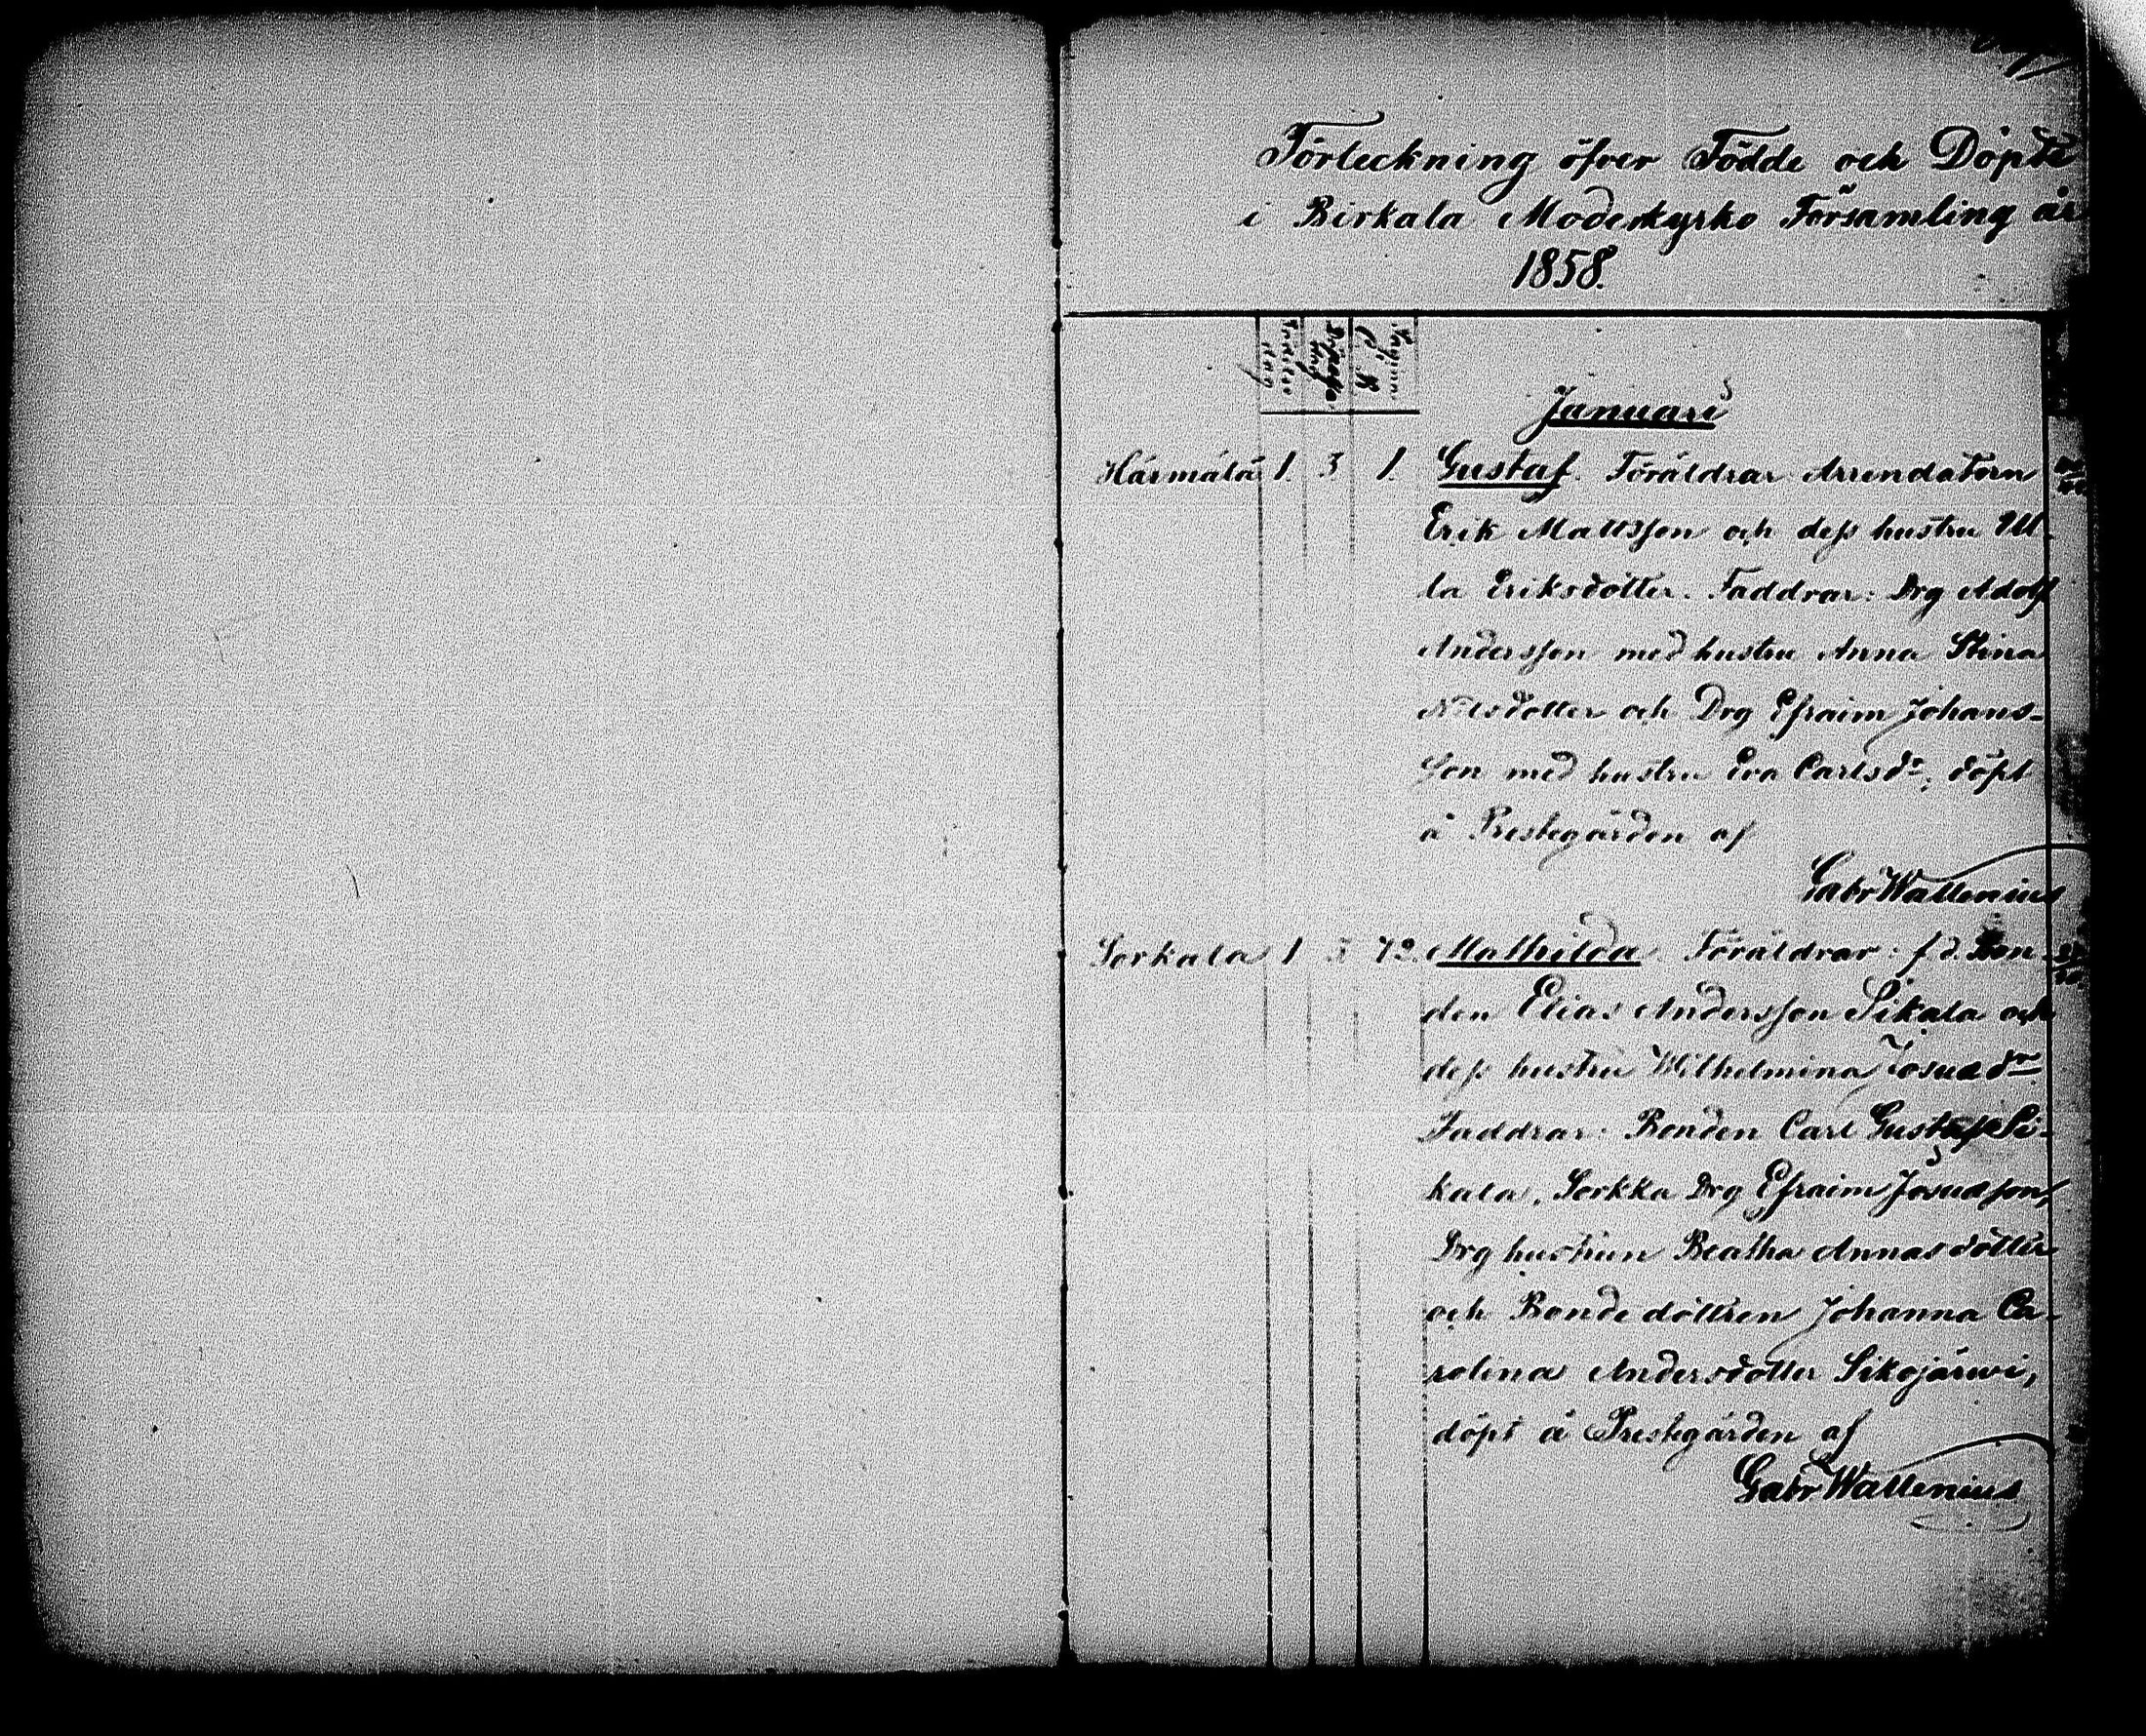 Förteckning öfver Födde och Döpte
i Birkala Moderkyrko Församling år
1858.
Födelse dag
Januari
Härmälä 1. 3 1. Gustaf. Föräldrar Arrendatorn
Erik Mattsson och dess hustru Ul
la Eriksdotter. Faddrar: Drg Adolf
Andersson med hustru Anna Stina
Nilsdotter och Drg Efraim Johans-
son med hustru Eva Carlsdr, döpt
å Prestegården af
Gabr Wallenius
Sorkala 1 3 Mathilda. Föräldrar: f. d. Bon-
den Elias Andersson Sikala och
dess hustru Wilhelmina Josuædr
Faddrar: Bonden Carl Gustaf Si-
kala, Sorkka Drg Efraim Josuæson,
Drg hustrun Beatha Annasdotter
och Bondedottren Johanna Ca-
rolina Andersdotter Sikojärwi,
döpt å Prestegården af
Gabr Wallenius